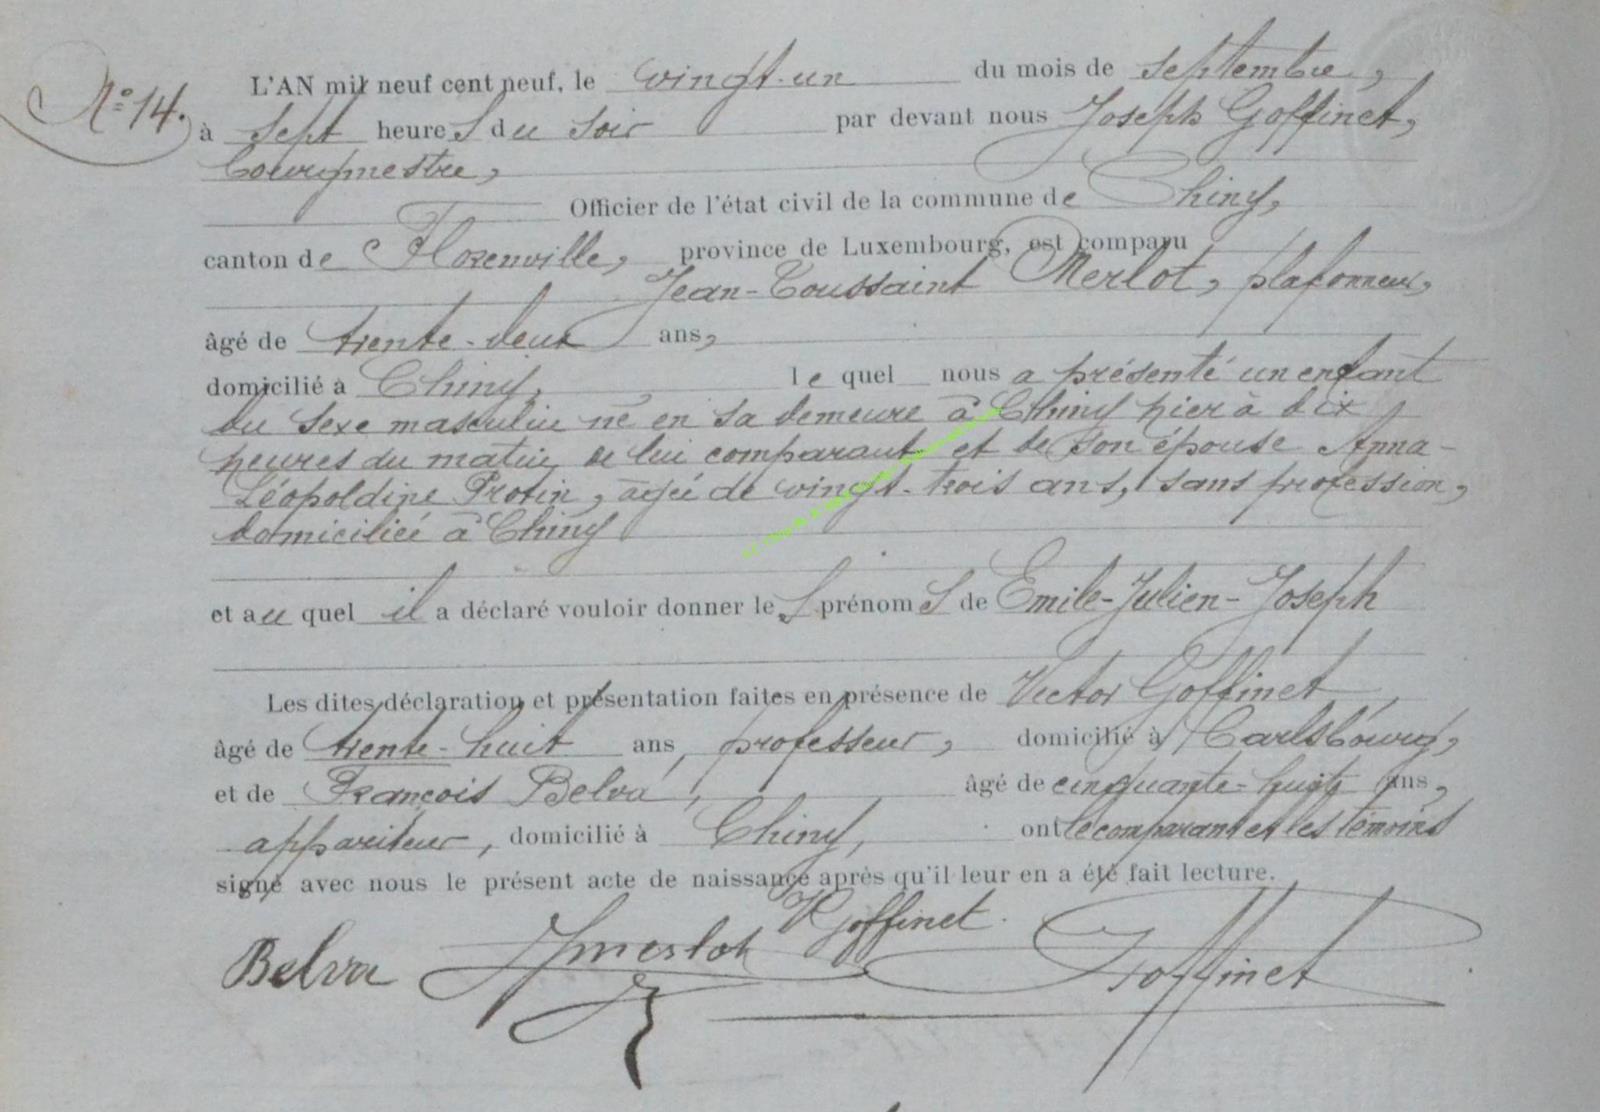 N° 14.
L'AN mil neuf cent neuf, le vingt-un du mois de septembre,
à sept heures du soir par devant nous Joseph Goffinet,
bourgmestre,
Officier de l'état civil de la commune de Chiny,
canton de Florenville, province de Luxembourg, est comparu
Jean-Toussaint Merlot, plafonneur,
âgé de trente-deux ans,
domicilié à Chiny, lequel nous a présenté un enfant
du sexe masculin né en sa demeure à Chiny hier à dix
heures du matin, de lui comparant et de son épouse Anna-
Léopoldine Protin, âgée de vingt-trois ans, sans profession,
domiciliée à Chiny
et auquel il a déclaré vouloir donner les prénoms de Emile-Julien-Joseph
Les dites déclaration et présentation faites en présence de Victor Goffinet,
âgé de trente-huit ans, professeur, domicilié à Carlsbourg,
et de François Belva, âgé de cinquante-huit ans,
appariteur, domicilié à Chiny, ont le comparant et les témoins
signé avec nous le présent acte de naissance après qu'il leur en a été fait lecture.
Belva Jmerlot VGoffinet Goffinet